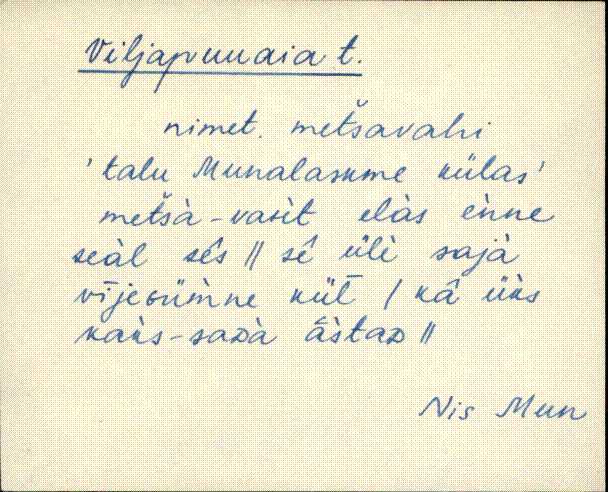 Viljapuuaia t.
nimet. metsavahi
'talu Munalaskme külas'
metšà-vaʜ̀it elàs èǹne
seàl sê̬s || sê üli sajà
vījeᴅüm̀ne küt̄ / kâ ük̀s
kak̀s-saᴅà âstaᴅ ||
Nis Mun